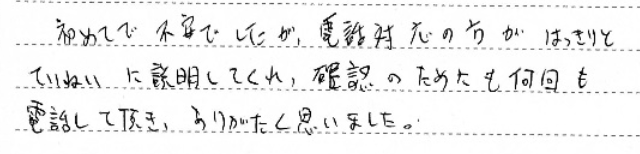 初めてで不安でしたが、電話対応の方がはっきりと
ていねいに説明してくれ、確認のためにも何回も
電話して頂き、ありがたく思いました。